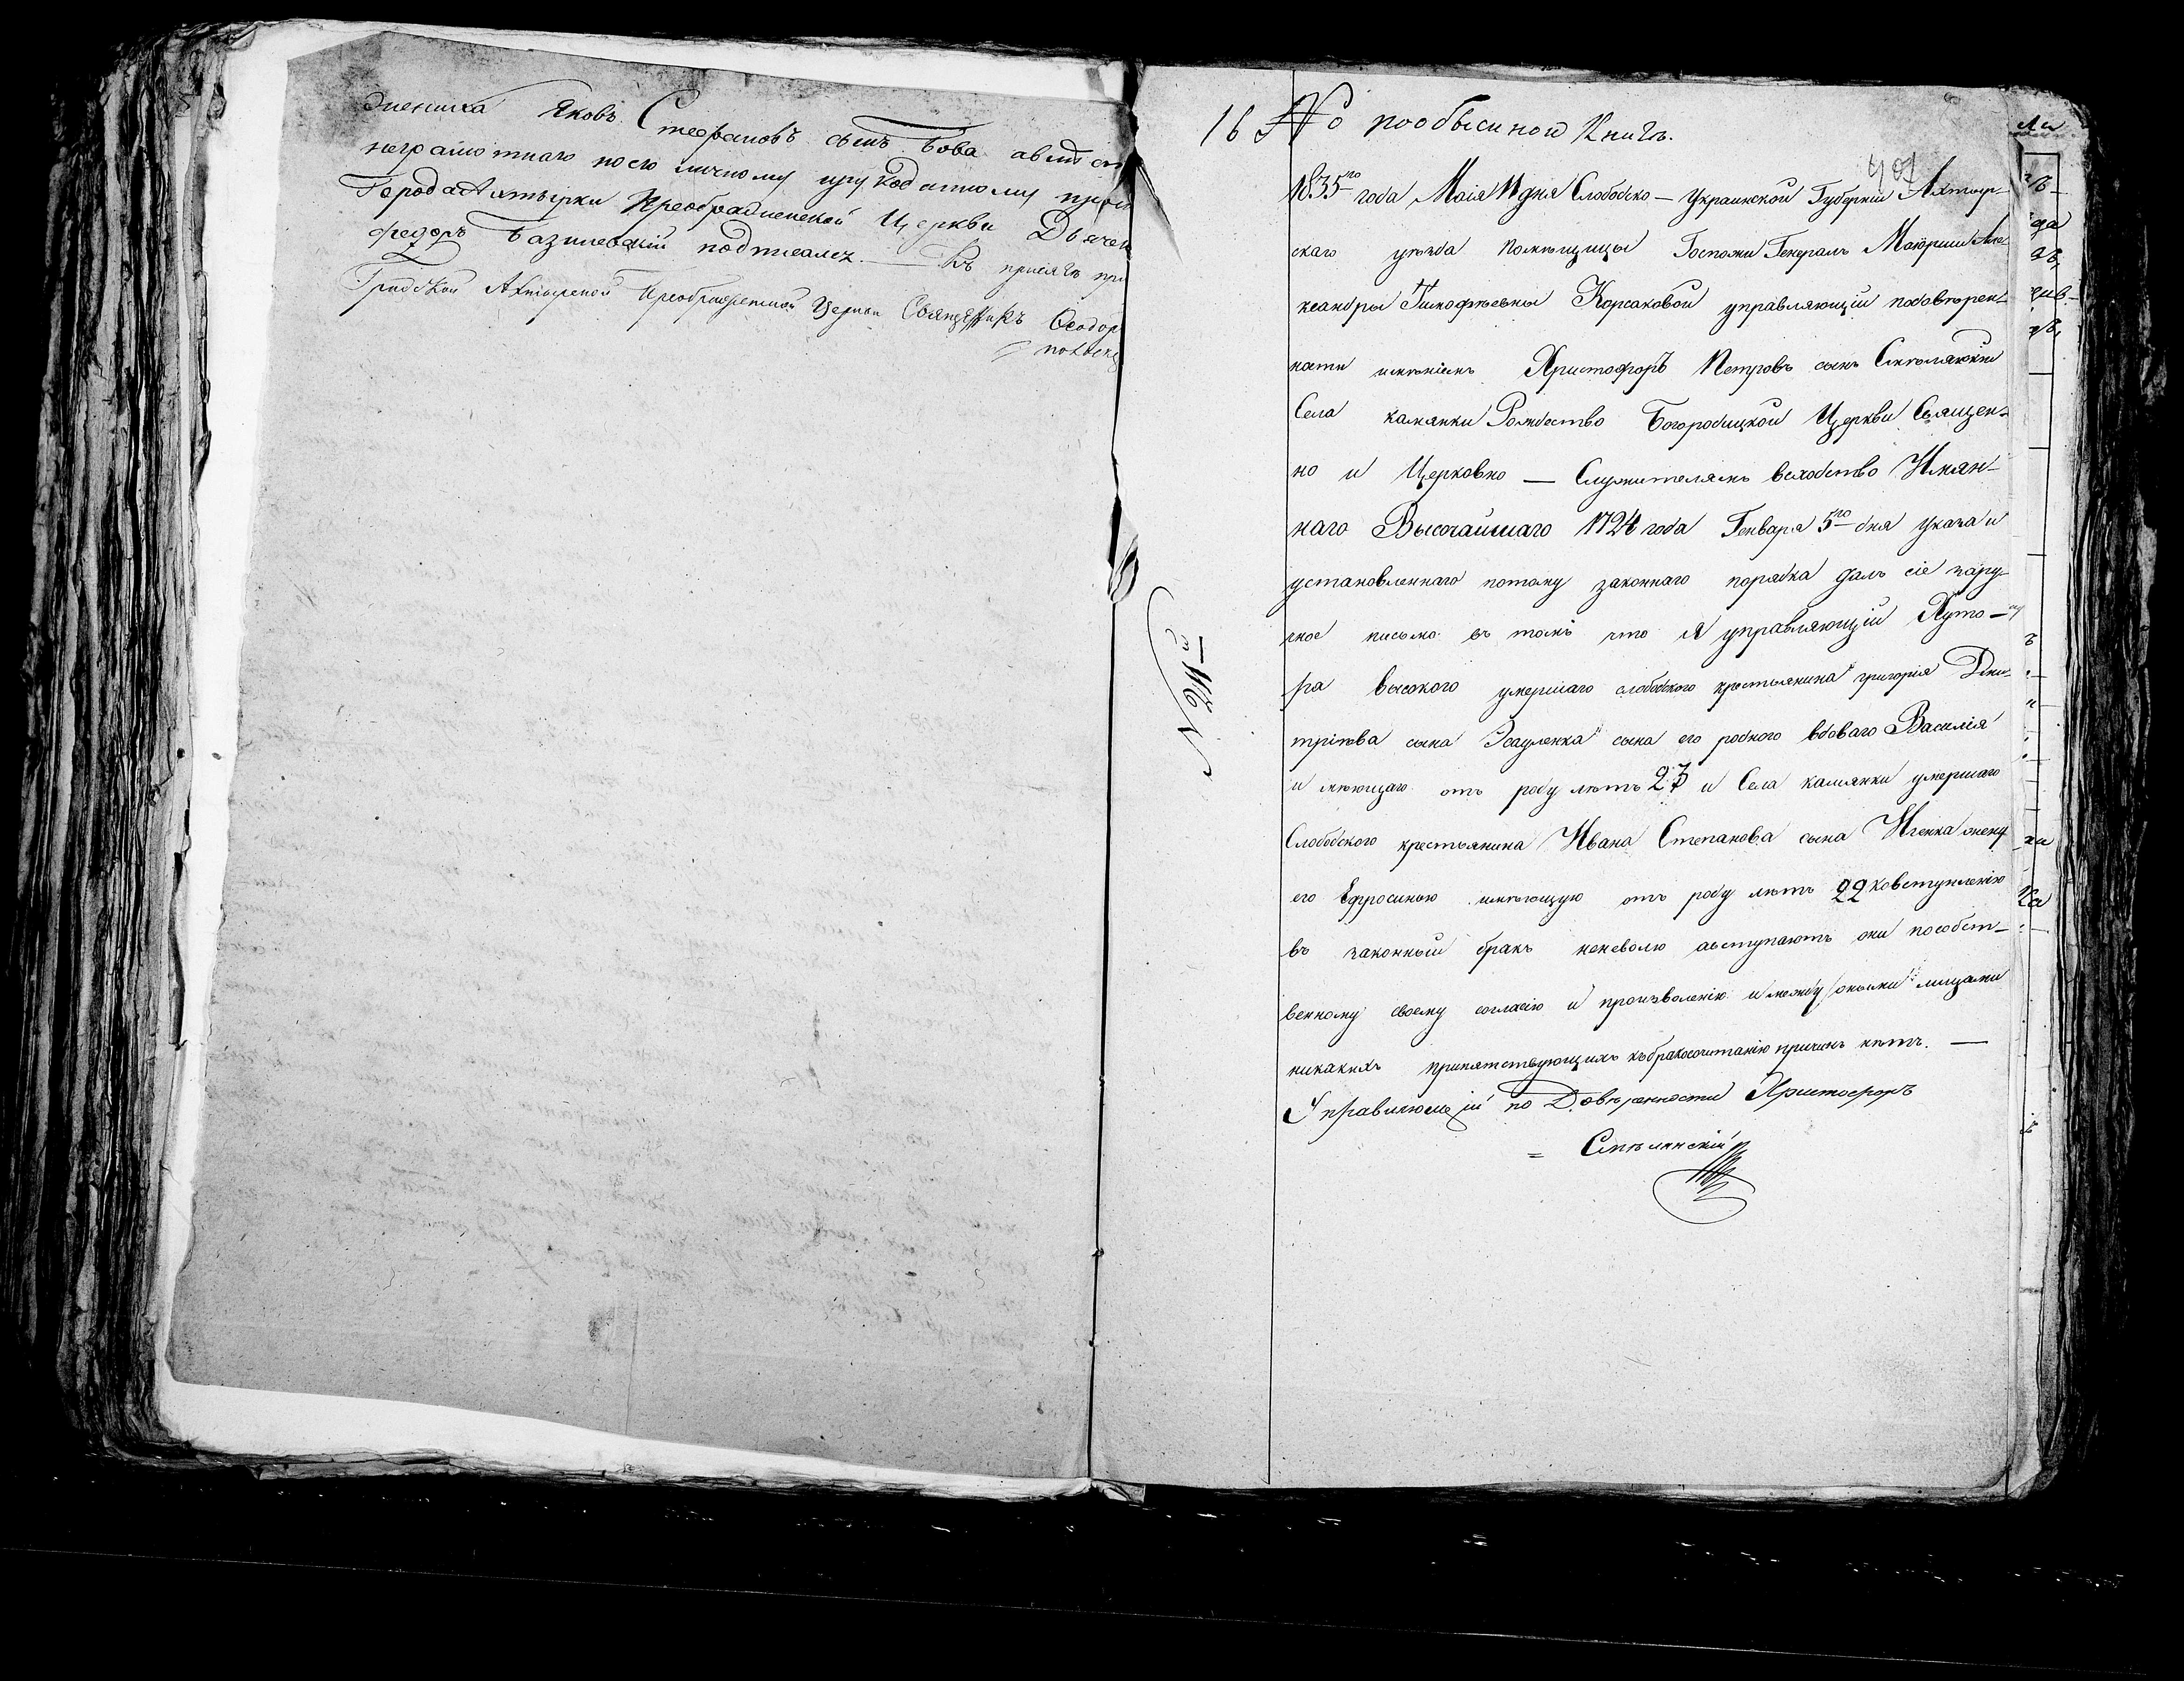 Яковъ Стефановъ сынъ Бова
неграмотнаго по его личному
Города Ахтырки Преображенской Церкви
федоръ Базилевскій подписалъ. — Къ присягѣ
Градской Ахтырской Преображенской Церкви Священникъ Феодор
16 № по обысной Книгѣ.
407
1835го года Маія 11 дня Слободско — Украинской Губерніи Ахтыр-
скаго уѣзда помѣщицы Госпожи Генералъ Маіорши Але
ксандры Тимофѣевны Корсаковой управляющій по довѣрен-
ности имѣніемъ Христофоръ Петровъ сынъ
Села камянки Рождество Богородицкой Церкви Священ-
но и Церковно — Служителямъ въ сходство Имян-
наго Высочайшаго 1724 года Генваря 5го дня указа и
установленнаго потому законнаго порядка далъ сіе зару-
чное письмо въ томъ что я управляющій Хуто-
ра высокого умершаго слободского крестьянина григорія Дми-
тріева сына Эсауленка сына его родного вдоваго Василія
имѣющаго отъ роду лѣтъ 23 и Села камянки умершаго
Слободского крестьянина Ивана Степанова сына жену
его Ефросинью имѣющую отъ роду лѣтъ 22 ко вступленію
въ законный бракъ неневолю а вступаютъ они по собст-
венному своему согласію и произволенію и между оными лицами
никакихъ припятствующихъ къ бракосочитанію причинъ нѣтъ. —
Управляющій по Довѣренности Христофоръ
= Смѣлянскій
№ 116